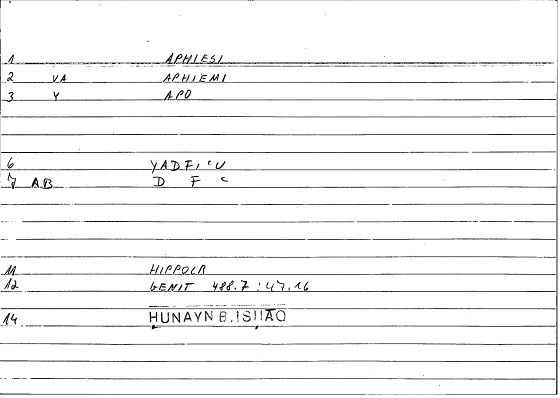 1 APHIESI
2 VA APHIEMI
3 Y APO
6 YADFIʿU
7 AB D F ʿ
11 HIPPOCR
12 GENIT 488.7 : 47.16
14 ḤUNAYN B. ISḤĀQ